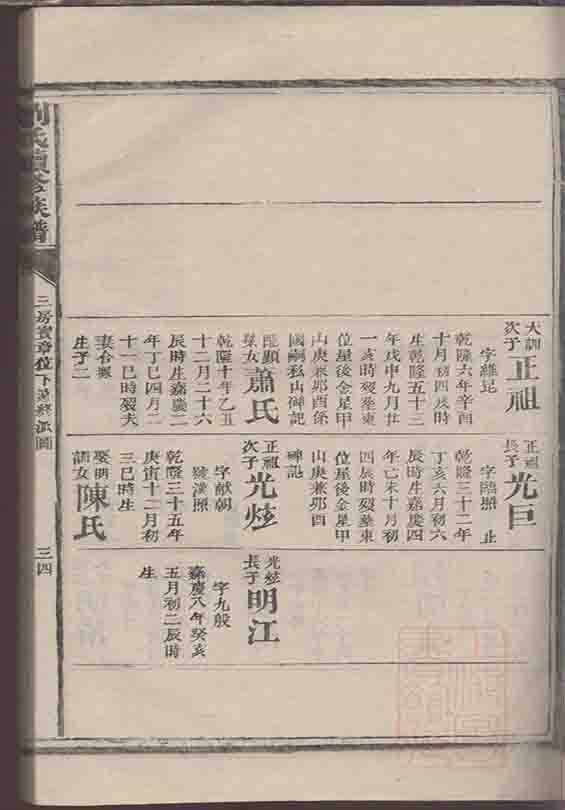 大訓次子
正祖
字維昆
乾隆六年辛酉
十月初四辰時
生乾隆五十三
年戊申九月廿
一亥時歿塟東
位屋後金星甲
山庚兼邜酉係
國嗣私山碑記
蕭氏
乾隆十年乙丑
十二月二十六
辰時生嘉慶二
年丁巳四月二
十一巳時歿夫
妻合塟
生子二
正祖長子
光巨
字臨照 止
乾隆三十二年
丁亥六月初六
辰時生嘉慶四
年己未十月初
四辰時歿塟東
位屋後金星甲
山庚兼邜酉
碑記
正祖次子
光炫
字獻朝
號漢照
乾隆三十五年
庚寅十二月初
三巳時生
陳氏
光炫長子
明江
字九般
嘉慶八年癸亥
五月初二辰時
生
劉氏續修族譜
三房實章位下世系派圖
三四